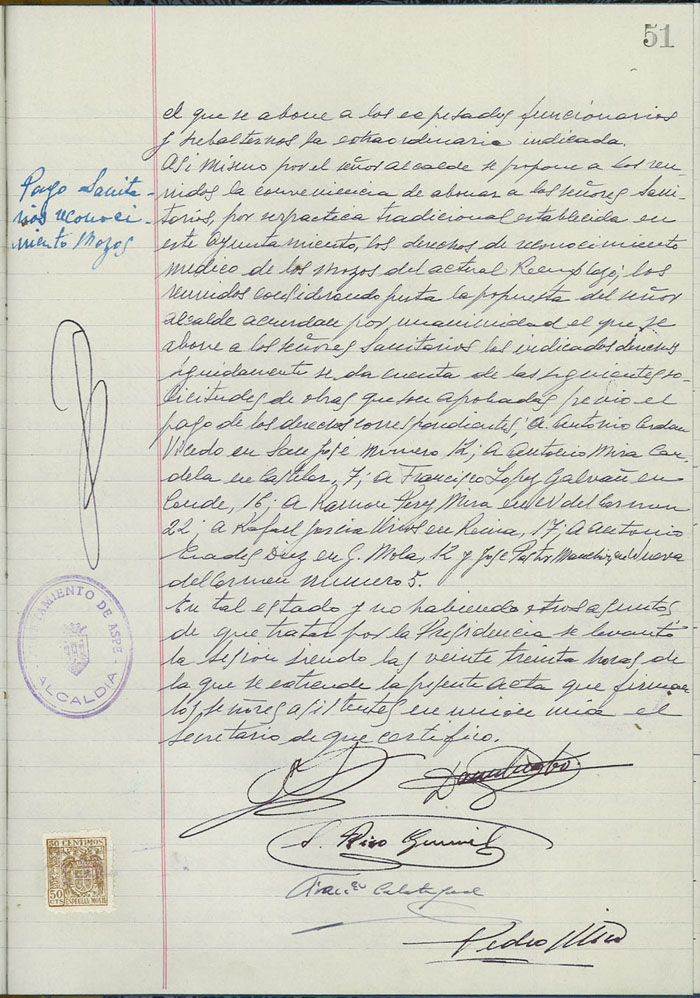 51
el que se abone a los expresados funcionarios
y subalternos la extraordinaria indicada.
Asi mismo por el señor alcalde se propone a los reu-
nidos la conveniencia de abonar a los señores Sani-
tarios, por ser practica tradicional establecida en
este Ayuntamiento, los derechos de reconocimiento
medico de los mozos del actual Reemplazo; los
reunidos considerando justa la propuesta del señor
alcalde acuerdan por unanimidad el que se
abone a los señores Sanitarios los indicados derechos
Seguidamente se da cuenta de las siguientes so-
licitudes de obras que son aprobadas previo el
pago de los derechos correspondientes; A Antonio
en San José número 12; a Antonio Mira Can-
dela en Castelar, 7; a Francisco Lopez Galvañ en
Conde, 16; a Ramon Perez Mira en del Carmen
22; a Rafael Garcia en Reina, 17; a Antonio
Diez en G. Mola, 12 y José Pastor
del Carmen numero 5.
En tal estado y no habiendo otros asuntos
de que tratar por la Presidencia se levantó
la sesion siendo las veinte treinta horas de
la que se extiende la presente Acta que firman
los señores asistentes en union mia el
secretario de que certifico.
Pago Sanita-
rios reconoci-
miento Mozos
AYUNTAMIENTO DE ASPE
ALCALDIA
50 CENTIMOS
50
CTS
ESPECIAL MOVIL
Pedro Mira